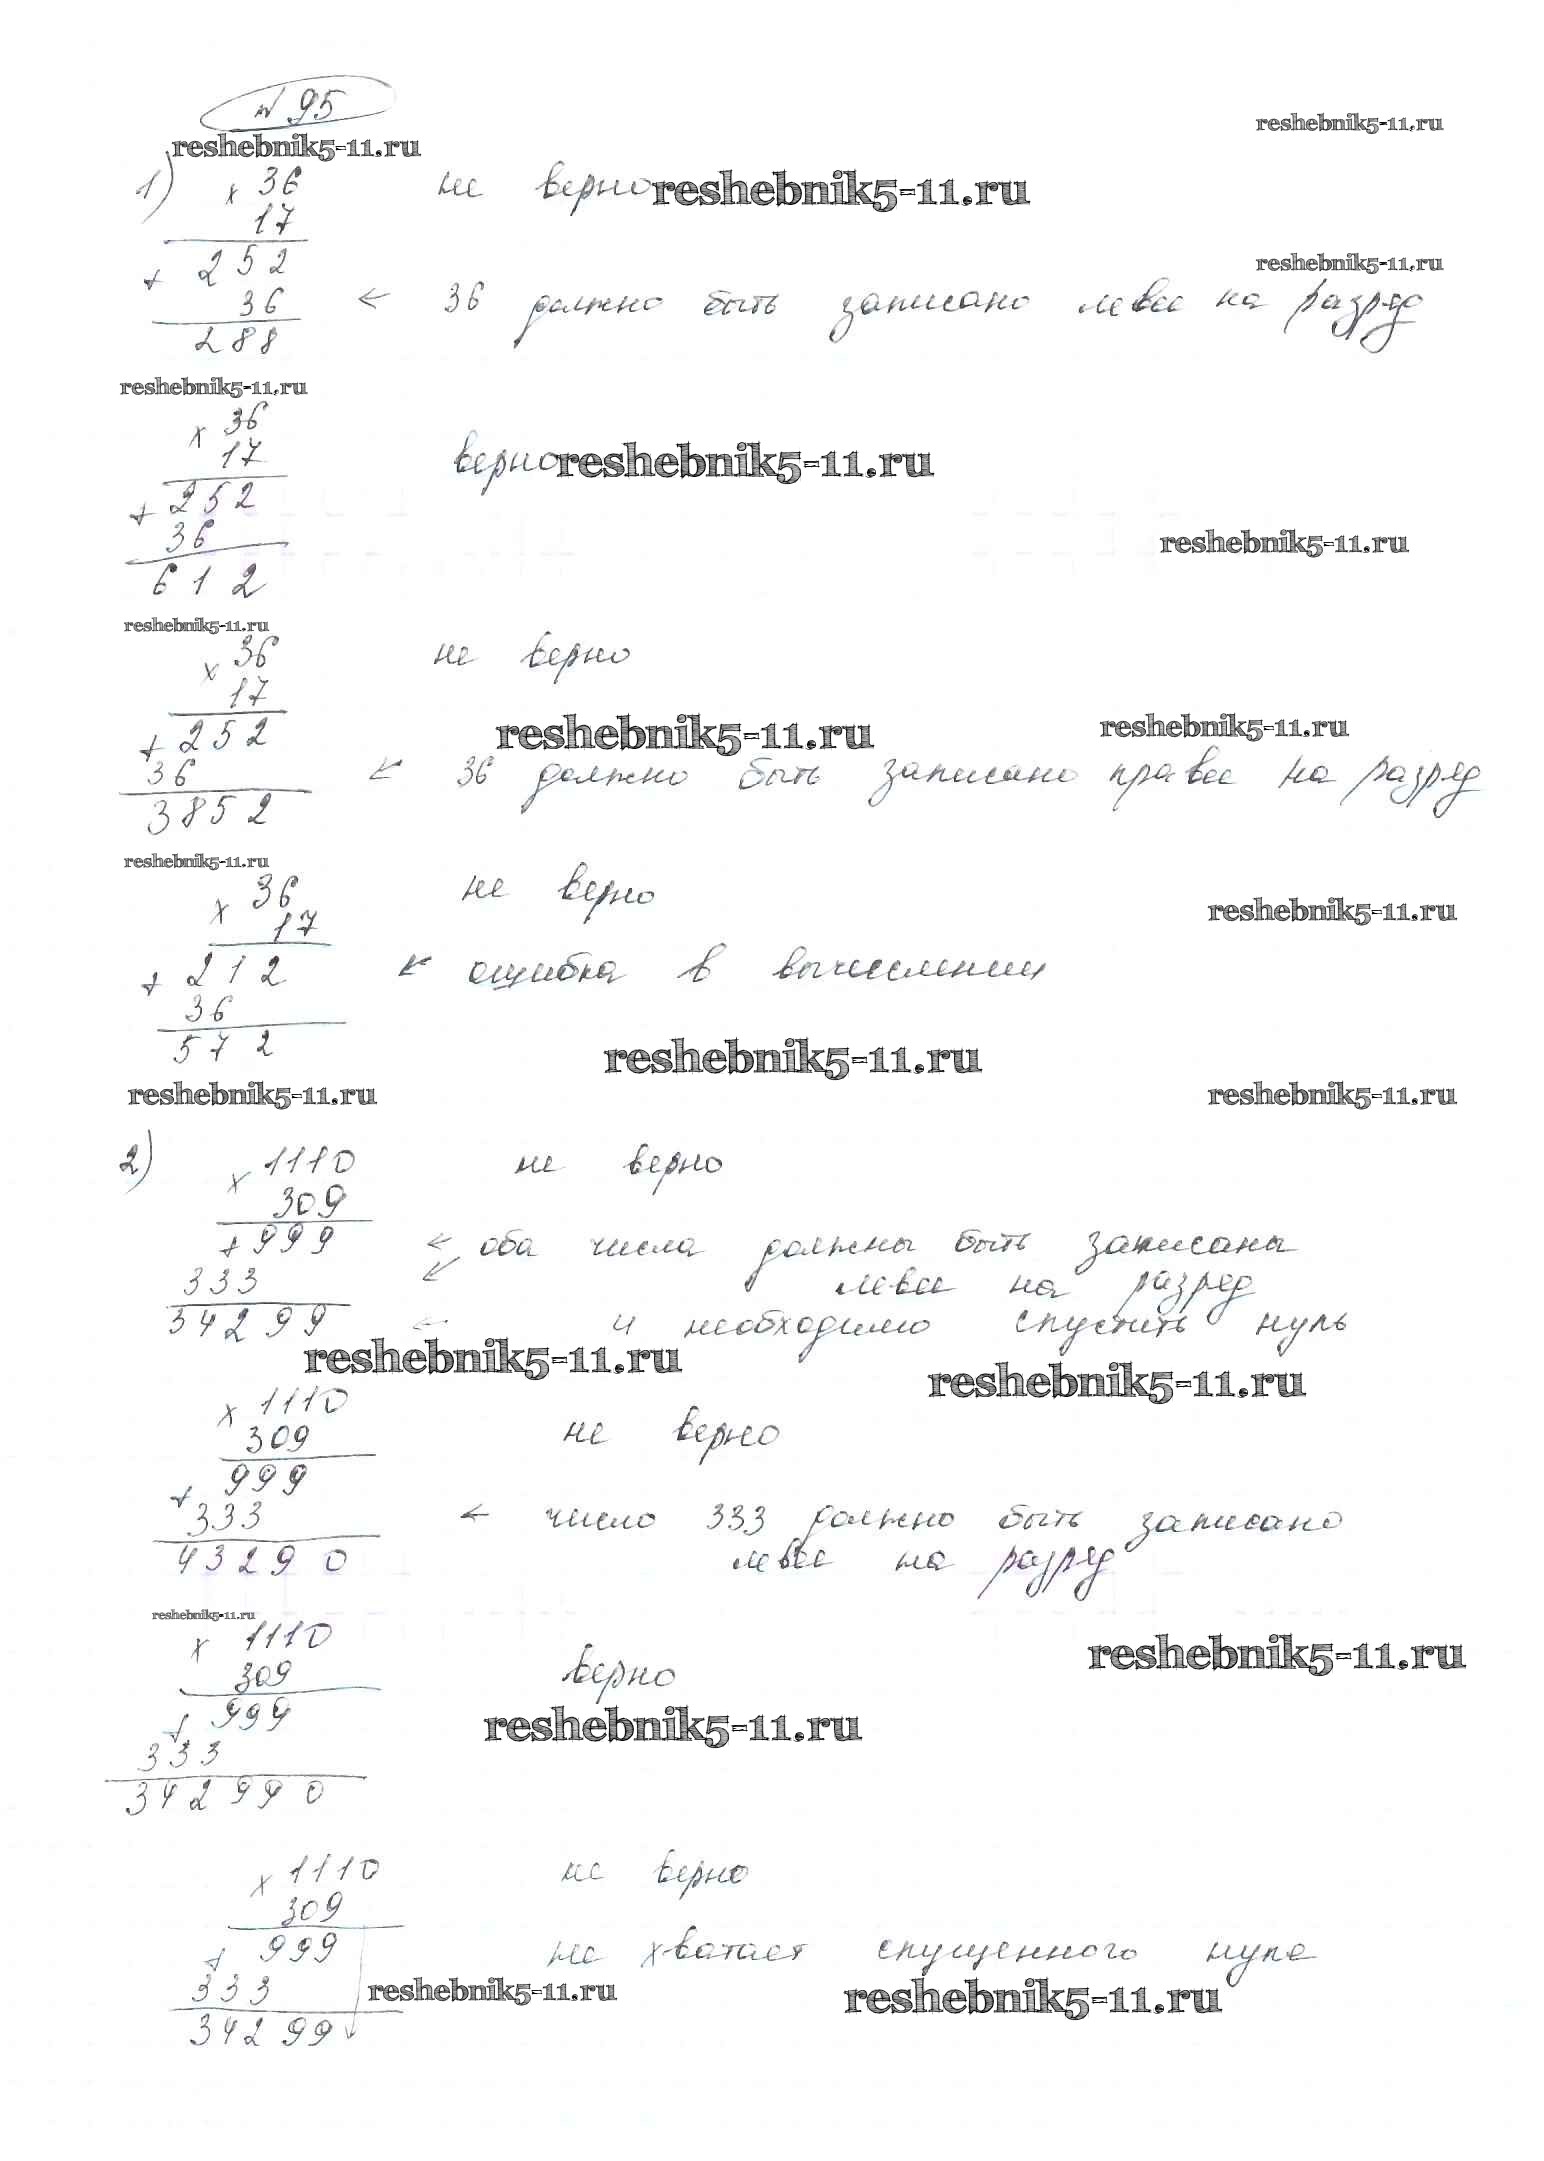 № 95
reshebnik5-11.ru
reshebnik5-11.ru
1) х 36 не верно reshebnik5-11.ru
17
+ 252
reshebnik5-11.ru
36 ← 36 должно быть записано левее на разряд
288
reshebnik5-11.ru
х 36
17 верно reshebnik5-11.ru
+ 252
36
reshebnik5-11.ru
612
reshebnik5-11.ru
х 36 не верно
17
+ 252 reshebnik5-11.ru reshebnik5-11.ru
36 ← 36 должно быть записано правее на разряд
3852
reshebnik5-11.ru
х 36 не верно
17 reshebnik5-11.ru
+ 212 ← ошибка в вычеслении
36
572 reshebnik5-11.ru
reshebnik5-11.ru reshebnik5-11.ru
2) х 1110 не верно
309
+ 999 ← оба числа должны быть записаны
333 ← левее на разряд
34299 ← и необходимо спустить нуль
reshebnik5-11.ru reshebnik5-11.ru
х 1110
309 не верно
999
+ 333 ← число 333 должно быть записано
43290 левее на разряд
reshebnik5-11.ru
х 1110 reshebnik5-11.ru
309 верно
+ 999 reshebnik5-11.ru
333
342990
х 1110 не верно
309
+ 999 не хватает спущенного нуле
333 reshebnik5-11.ru reshebnik5-11.ru
34299